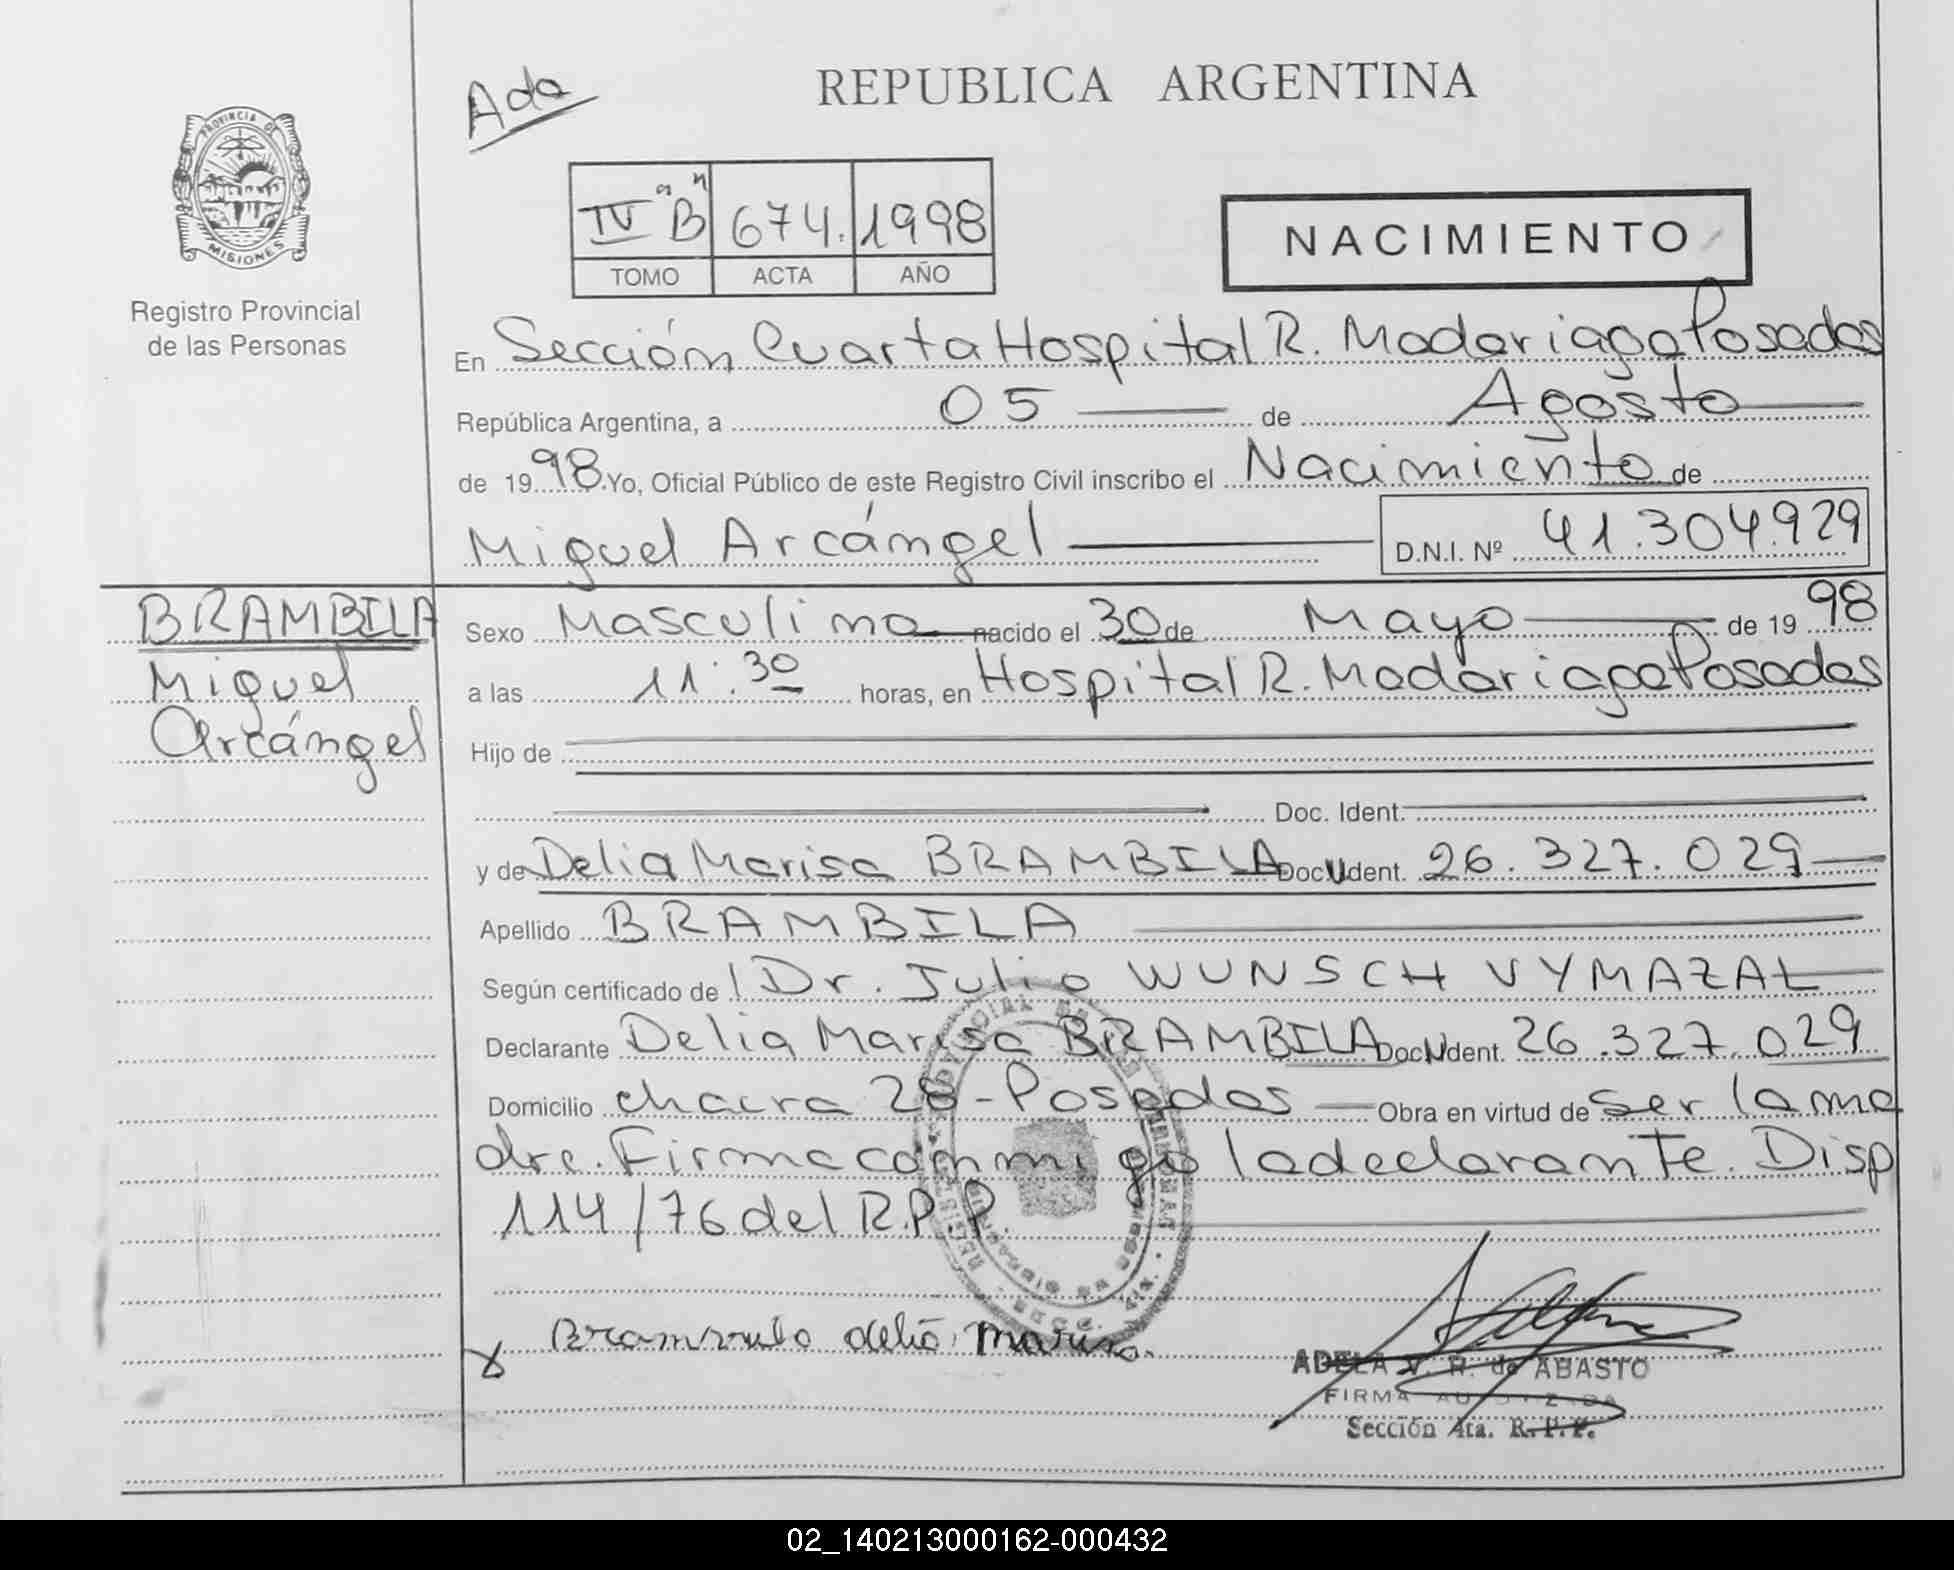 Ada
REPUBLICA ARGENTINA
PROVINCIA DE
MISIONES
Registro Provincial
de las Personas
IV "B" 674. 1998
TOMO ACTA AÑO
NACIMIENTO
En Sección Cuarta Hospital R. Madariaga Posadas
República Argentina, a 05 de Agosto
de 1998. Yo, Oficial Público de este Registro Civil inscribo el Nacimiento de
Miguel Arcángel D.N.I. Nº 41.304.929
BRAMBILA
Miguel
Arcángel
Sexo Masculino nacido el 30 de Mayo de 1998
a las 11:30 horas, en Hospital R. Madariaga Posadas
Hijo de
Doc. Ident.
y de Delia Marisa BRAMBILA Doc. Ident. 26.327.029
Apellido BRAMBILA
Según certificado de l Dr. Julio WUNSCH VYMAZAL
Declarante Delia Marisa BRAMBILA Doc. Ident. 26.327.029
Domicilio chacra 28 - Posadas Obra en virtud de ser la ma
dre. Firma conmigo la declarante. Disp
114/76 del R.P.P.
delia Marisa
ADELA V. R. de ABASTO
FIRMA AUTORIZADA
Sección 4ta. R.P.P.
02_140213000162-000432